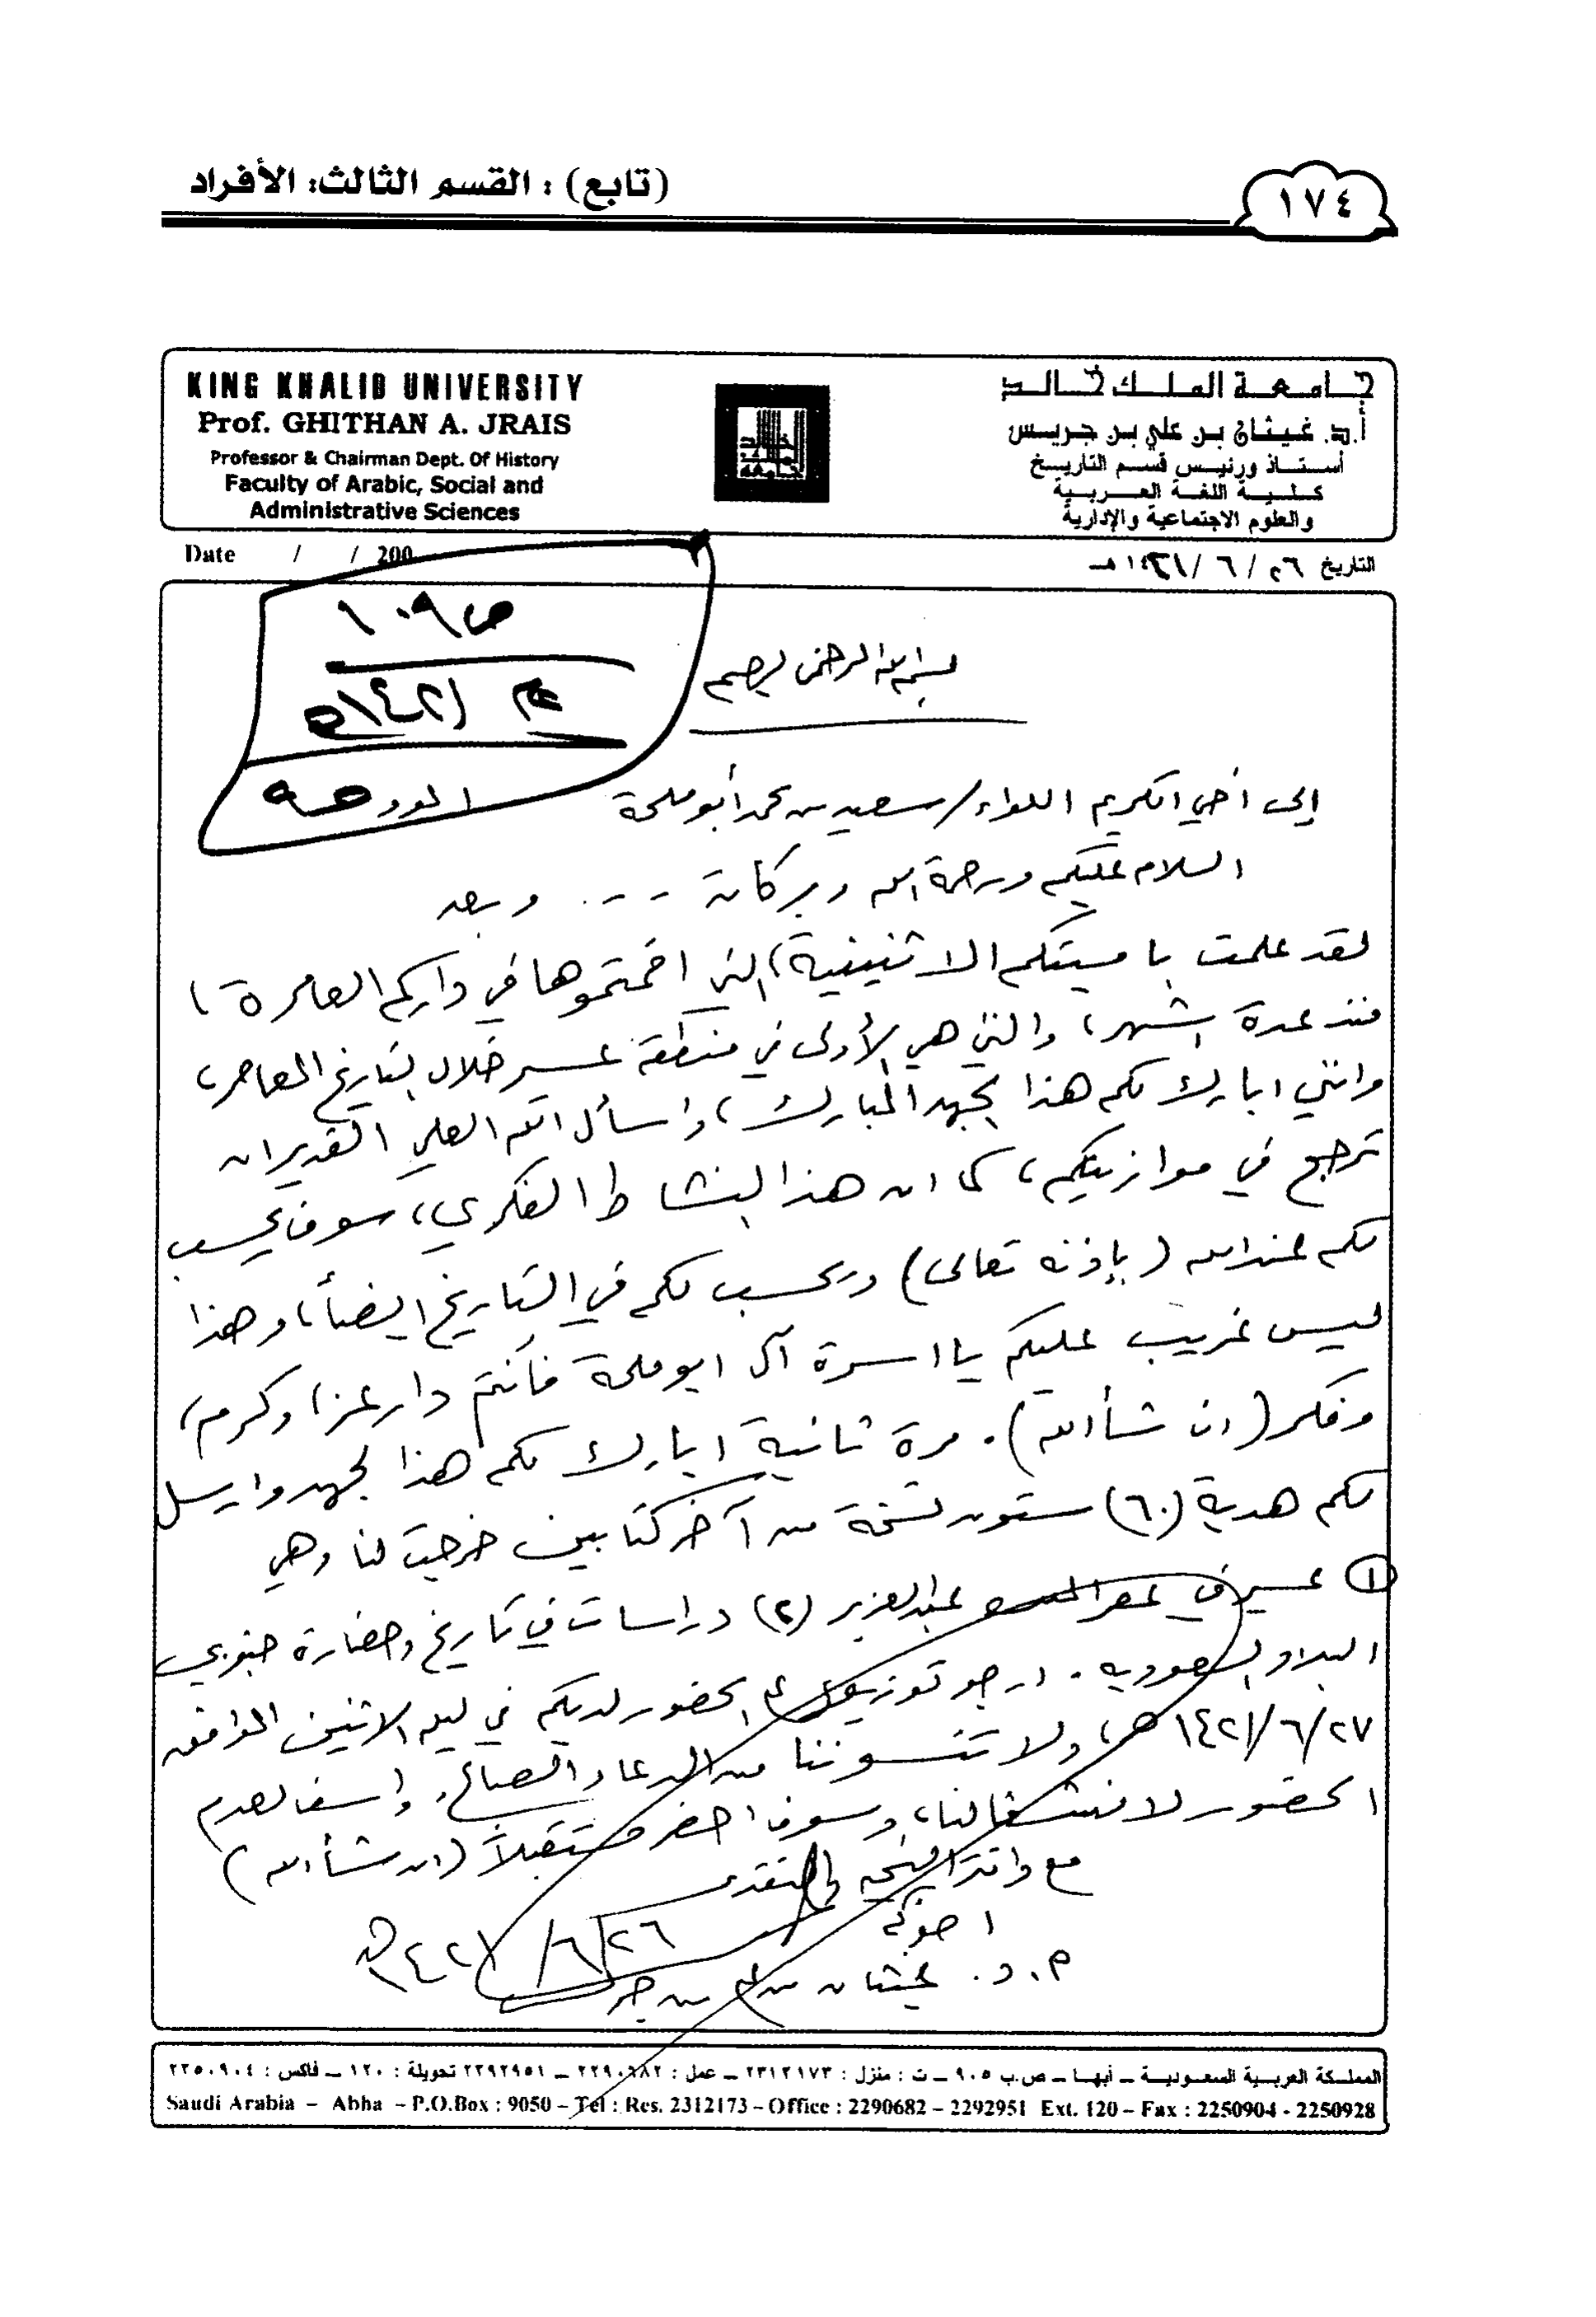 (تابع) : القسم الثالث: الأفراد
١٧٤
KING KHALID UNIVERSITY
Prof. GHITHAN A. JRAIS
Professor & Chairman Dept. Of History
Faculty of Arabic, Social and
Administrative Sciences
جامعة الملك خالد
أ.د. غيثان بن علي بن جريس
أستاذ ورئيس قسم التاريخ
كلية اللغة العربية
والعلوم الاجتماعية والإدارية
Date / / 200
التاريخ ٢٦ / ٦ / ١٤٢١ هـ
ص ١٠٩
١٤٢١هـ
بسم الله الرحمن الرحيم
إلى أخي الكريم اللواء/ سعيد بن محمد أبو ملحة
السلام عليكم ورحمة الله وبركاته - - . وبعد
لقد علمت بامسيتكم الاثنينية، التي اقمتموها في داركم العامرة،
منذ عدة اشهر، والتي هي الأولى في منطقة عسير خلال التاريخ المعاصر،
وانني ابارك لكم هذا الجهد المبارك، واسأل الله العلي القدير ان
ترجح في موازينكم، كما ان هذا النشاط الفكري، سوف يحسب
لكم عند الله (بإذنه تعالى) ويحسب لكم في التاريخ ايضاً، وهذا
ليس غريب عليكم يا اسرة آل ابو ملحة فأنتم دار عز، وكرم،
وفكر (ان شأ الله). مرة ثانية ابارك لكم هذا الجهد وارسل
لكم هدية (٦٠) ستون نسخة من آخر كتابين خرجت لنا وهي
(١) عسير في عصر الملك عبدالعزيز (٢) دراسات في تاريخ وحضارة جنوبي
البلاد السعودية. ارجو توزيعها على الحضور لديكم في ليلة الاثنين الموافق
٢٧/٦/١٤٢١هـ، ولا تنسوننا من الدعاء الصالح، واسف لعدم
الحضور لانشغالنا، وسوف احضر مستقبلاً (ان شأ الله)
مع وافر التحية والتقدير
اخوكم
أ. د. غيثان بن علي بن جريس
٢٦/٦/١٤٢١هـ
المملكة العربية السعودية – أبها – ص.ب ٩٠٥ – ت : منزل : ٢٣١٢١٧٣ – عمل : ٢٢٩٠٦٨٢ – ٢٢٩٢٩٥١ تحويلة : ١٢٠ – فاكس : ٢٢٥٠٩٠٤
Saudi Arabia – Abha – P.O.Box : 9050 – Tel : Res. 2312173 – Office : 2290682 – 2292951 Ext. 120 – Fax : 2250904 - 2250928